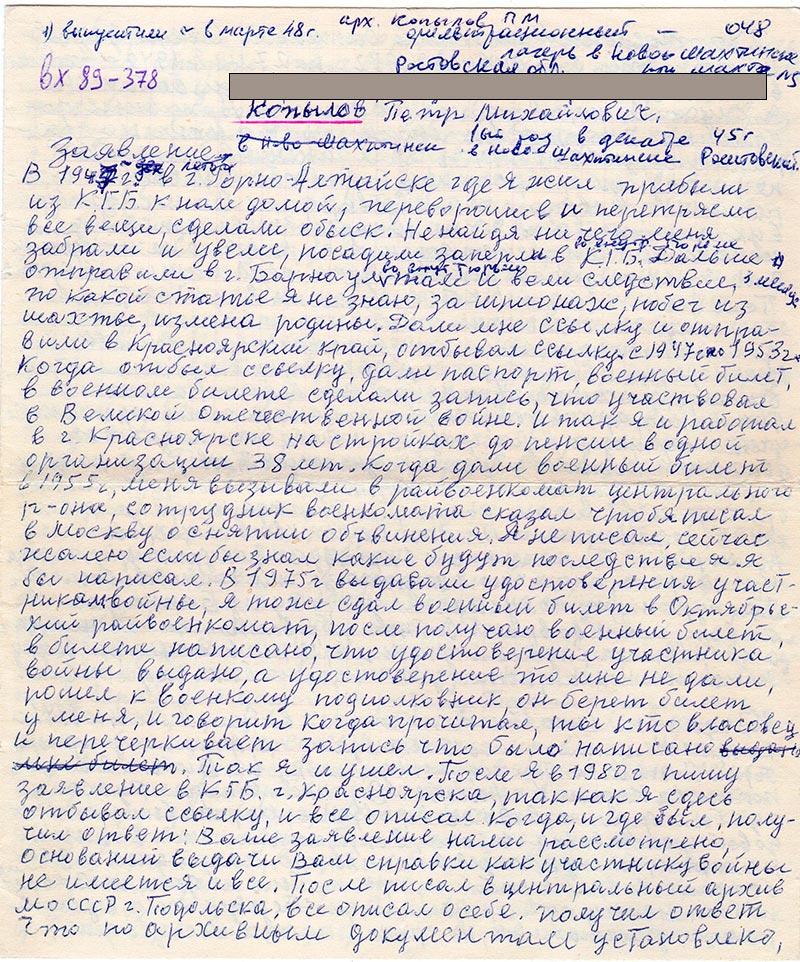 1) выпустили ~ в марте 48 г. арх. Копылов ПМ
фильтрационный — 048
лагерь в Новошахтинске
Ростовская обл. при шахте №5
вх 89-378
Копылов Петр Михайлович,
в Ново Шахтинск 1ый раз в декабре 45 г
Заявление в Ново-Шахтинске Ростовской.
В 194 г. летом в г. Горно-Алтайске где я жил прибыли
из КГБ к нам домой, переворошив и перетрясли
все вещи, сделали обыск. Не найдя ничего меня
забрали и увели, посадили заперли в КГБ. во внутр тюрьме Дальше
отправили в г. Барнаул во внут тюрьму там и вели следствие, 3 месяца
по какой статье я не знаю, за шпионаж, побег из
шахты, измена родины. Дали мне ссылку и отпра-
вили в Красноярский край, отбывал ссылку с 1947 по 1953 г.
Когда отбыл ссылку, дали паспорт, военный билет,
в военном билете сделали запись, что участвовал
в Великой отечественной войне. и так я и работал
в г. Красноярске на стройках до пенсии в одной
организации 38 лет. Когда дали военный билет
в 1955 г, меня вызывали в райвоенкомат центрального
р-она, сотрудник военкомата сказал чтобы я писал
в Москву о снятии обвинения. Я не писал, сейчас
жалею если бы знал какие будут последствия я
бы написал. В 1975 г выдавали удостоверения участ-
никам войны, я тоже сдал военный билет в Октябрьс-
кий райвоенкомат, после получаю военный билет,
в билете написано, что удостоверение участника
войны выдано, а удостоверение то мне не дали,
пошел к военкому подполковник, он берет билет
у меня, и говорит когда прочитал, ты кто власовец
и перечеркивает запись что было написано выдан
мне билет. Так я и ушел. После я в 1980 г пишу
заявление в КГБ. г. Красноярска, так как я здесь
отбывал ссылку, и все описал когда, и где был, полу-
чил ответ: Ваше заявление нами рассмотрено,
оснований выдачи Вам справки как участнику войны
не имеется и все. После писал в центральный архив
МО СССР г. Подольска, все описал о себе. получил ответ
что по архивным документам установлено,